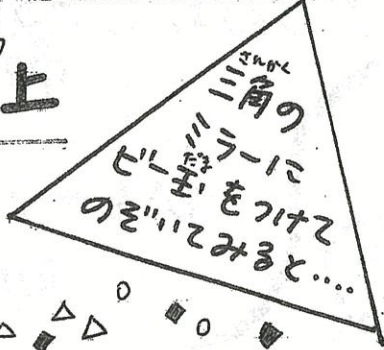 上
さんかく
三角の
ミラーに
だま
ビー玉をつけて
のぞいてみると‥‥